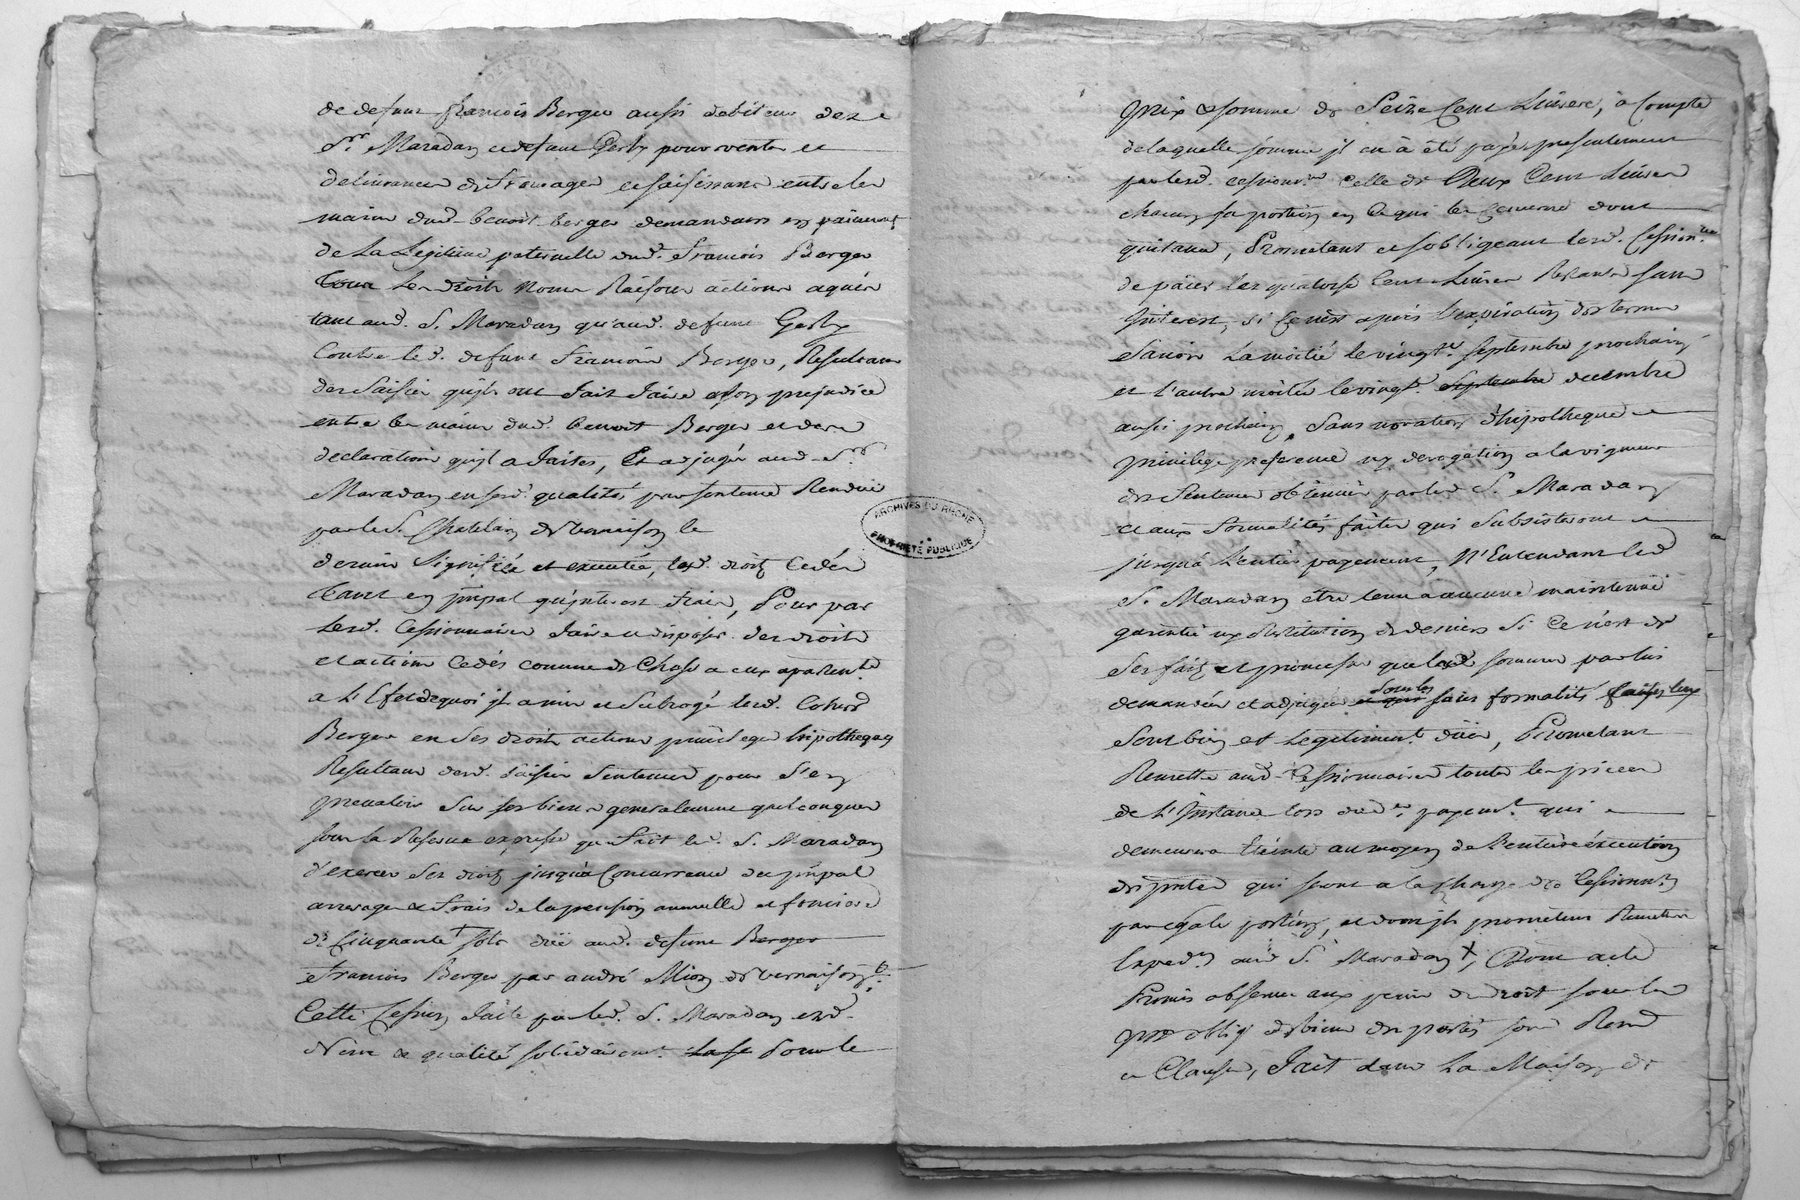 de defunt francois Berger aussi debiteur desd
Sr. Maradan et defunt Gerby pour vente et
delivrance de fromages et saisissant entre les
mains dud. benoit berger demandeurs en paiement
de La Legitime paternelle dud. francois Berger
Tous Les droits noms Raisons actions aquis
tant aud. S. Maradan qu'aud. defunt Gerby
Contre led. defunt francois Berger, Resultans
des Saisies qu'ils ont fait faire a son prejudice
entre les mains dud. benoit Berger et des
declarations qu'il a faites, Et adjugés aud. Sr.
Maradan en sesd. qualités par sentence Rendüe
par le S. Chatelain de vernaison le
dernier Signifiée et executée, lesd. droits Cedés
Tant en pnipal qu'interest frais, Pour par
Lesd. Cessionnaires faire et disposer des droits
et actions Cedés comme de Chose a eux apartente
a L'Efet dequoi il a mis et Subrogé lesd. Cohers
Berger en Ses droits actions privilege hipotheques
Resultant desd. Saisies Sentence pour S'en
prevaloir Sur ses biens generalement quelconques
sous la Reserve expresse que fait led. S. Maradan
d'exercer Ses droits jusqu'a Concurrence du pnipal
arrerages & frais de la pension annuelle et fonciere
de Cinquante sols düe aud. defunt Berger
francois Berger par andré Mion de vernaison
Cette Cession faite par led. S. Maradan esd.
Nom & qualité solidairemt. La se pour le
prix & somme de Seize Cent Livres, a Compte
de laquelle somme il en a été payé presentement
par lesd. cessionres Celle de Deux Cent Livres
chacun sa portion en Ce qui les Concerne dont
quitance, Promettant et s'obligeant lesd. Cessionres
de païer Les quatorse Cent Livres Restans sans
Interest, si Ce n'est apres L'expiration des termes
Savoir La moitié le vingte. septembre prochain
et L'autre moitié le vingte. septembre decembre
aussi prochain, Sans novation d'hipotheque
privilege preference ny derogation a la vigueur
des Sentence obtenues par led S. Maradan
et aux formalités faites qui Subsisteront
jusqu'a L'entier payement, N'Entendant led
S. Maradan etre tenu a aucune maintenüe
garentie ny Restitution de deniers Si Ce n'est de
Ses faits et promesses que lesd sommes par lui
demandées et adjugées sous les formalités
Sont bien et Legitimemt. düe, Prometant
Remettre aud. Cessionnaires toutes les pieces
de L'Instance lors dud. payemt. qui
demeurera Eteinte au moyen de L'entiere execution
des pntes qui seront a la charge des Cessionnres
par egale portion, et dont ils promettent Remettre
Expedon aud S. Maradan X, Dont acte
Promis observer aux peines de droit sous les
oblig de biens des parties soum Renon
& Clauses, fait dans La Maison de
ARCHIVES DU RHÔNE
PROPRIÉTÉ PUBLIQUE